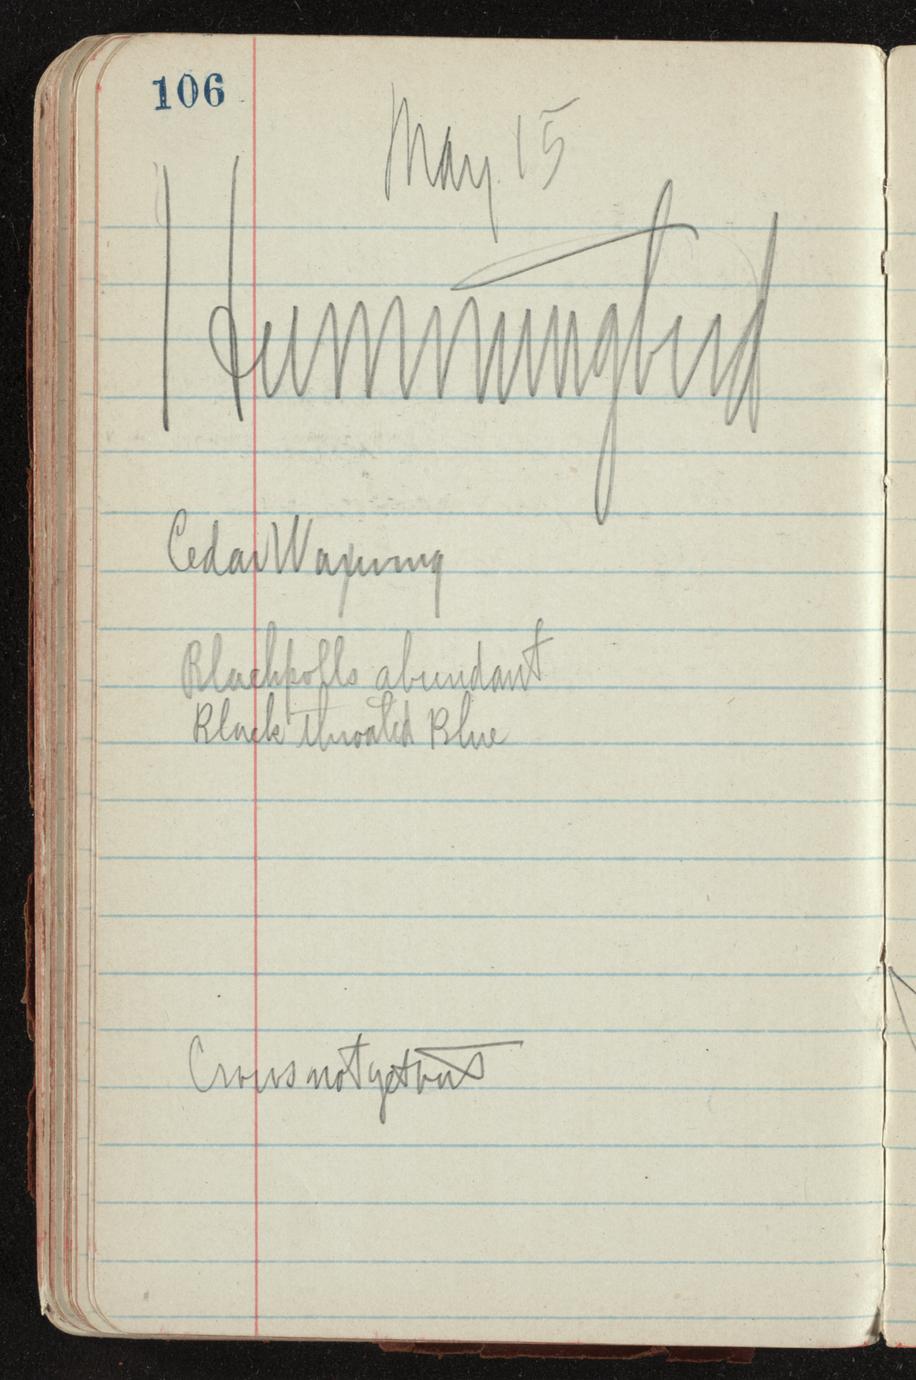 106
May 15
Hummingbird
Cedar Waxwing
Blackpolls abundant
Black throated Blue
Crows not yet out